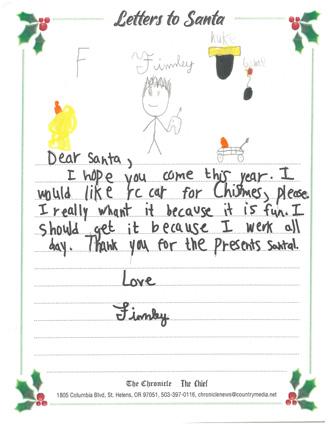 Letters to Santa
F Finnley nuke
bomb
Dear Santa,
I hope you come this year. I
would like rc car for Chistmes, please.
I really whant it because it is fun. I
should get it because I work all
day. Thank you for the presents Santa!.
Love
Finnley
The Chronicle The Chief
1805 Columbia Blvd, St. Helens, OR 97051, 503-397-0116, chroniclenews@countrymedia.net